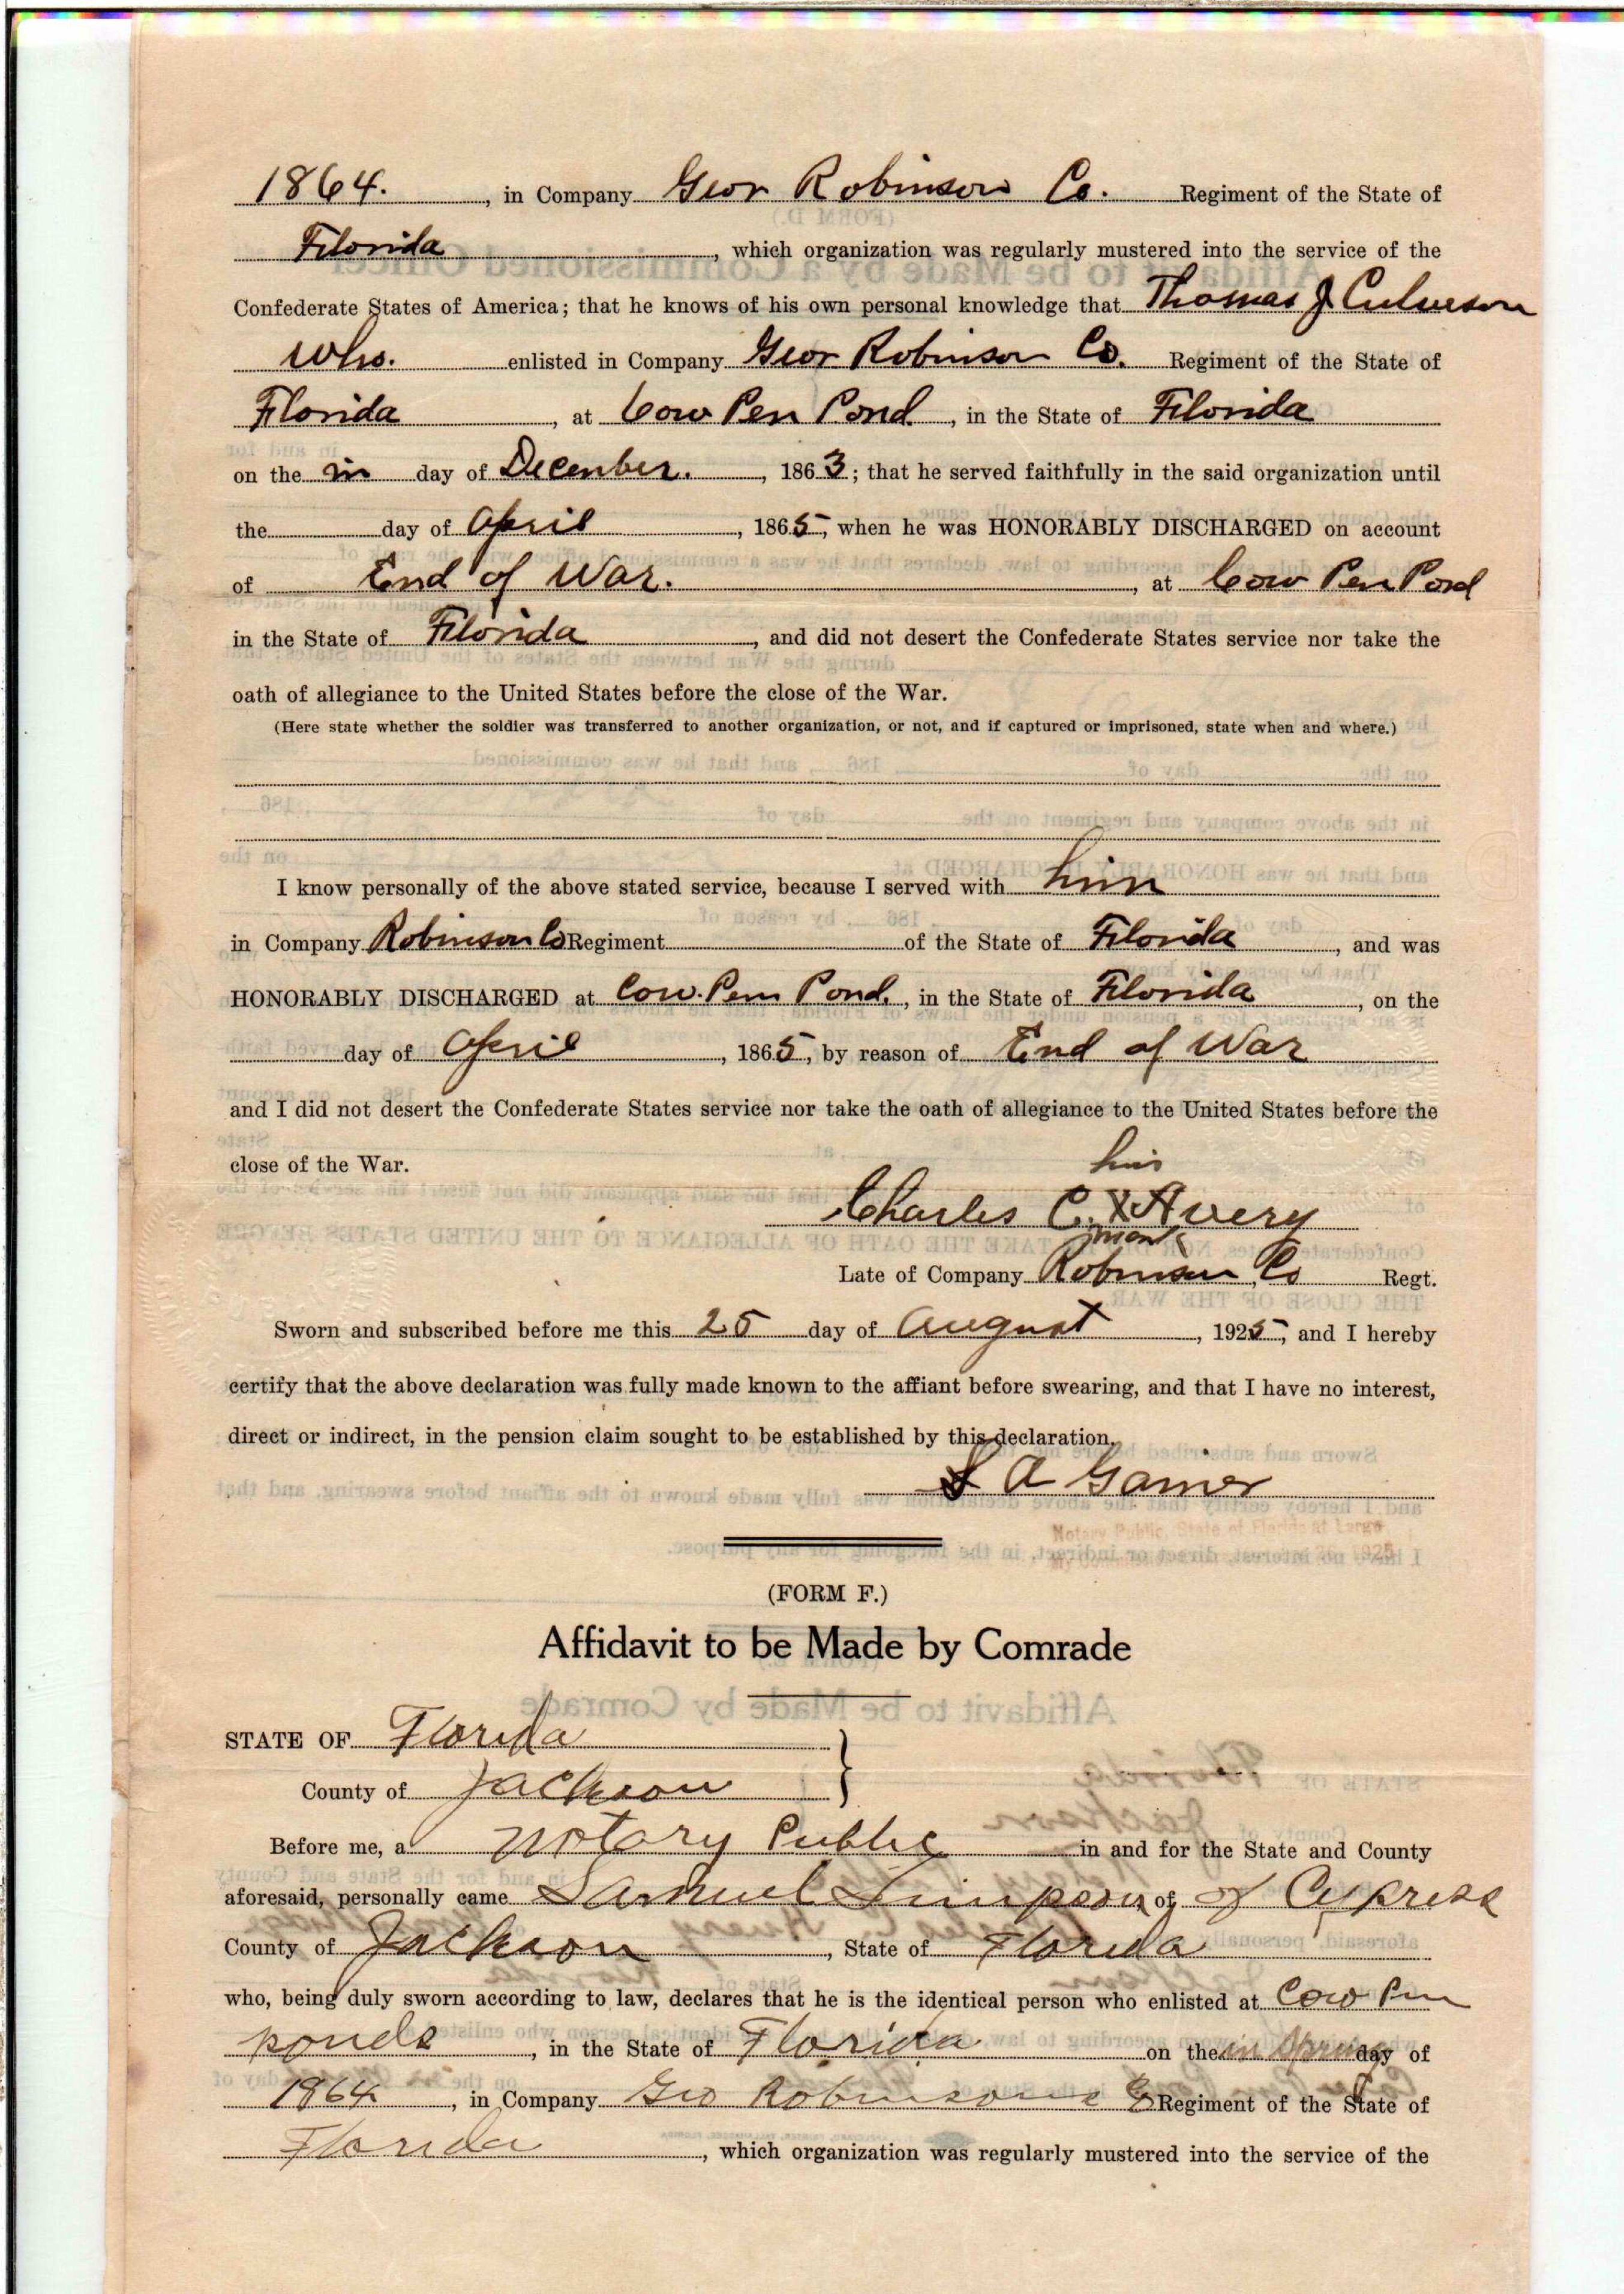 1864. , in Company Geor Robinson Co. Regiment of the State of
Florida , which organization was regularly mustered into the service of the
Confederate States of America; that he knows of his own personal knowledge that Thomas J Culverson
Who. enlisted in Company Geor Robinson Co. Regiment of the State of
Florida , at Cow Pen Pond , in the State of Florida
on the in day of December. , 1863; that he served faithfully in the said organization until
the day of April , 1865, when he was HONORABLY DISCHARGED on account
of End of War. , at Cow Pen Pond
in the State of Florida , and did not desert the Confederate States service nor take the
oath of allegiance to the United States before the close of the War.
(Here state whether the soldier was transferred to another organization, or not, and if captured or imprisoned, state when and where.)
I know personally of the above stated service, because I served with him
in Company Robinson Co Regiment of the State of Florida , and was
HONORABLY DISCHARGED at Cow. Pen Pond. , in the State of Florida , on the
day of April , 1865, by reason of End of War
and I did not desert the Confederate States service nor take the oath of allegiance to the United States before the
close of the War.
his
Charles C. X Avery
mark
Late of Company Robinson Co Regt.
Sworn and subscribed before me this 25 day of August , 1925, and I hereby
certify that the above declaration was fully made known to the affiant before swearing, and that I have no interest,
direct or indirect, in the pension claim sought to be established by this declaration.
S A Gainer
Notary Public, State of Florida at Large
(FORM F.)
Affidavit to be Made by Comrade
STATE OF Florida
County of Jackson
Before me, a Notary Public in and for the State and County
aforesaid, personally came Samuel Simpson of of Cypress
County of Jackson , State of Florida
who, being duly sworn according to law, declares that he is the identical person who enlisted at Cow Pen
ponds , in the State of Florida on the in Spring day of
1864 , in Company Geo Robinsons Co Regiment of the State of
Florida , which organization was regularly mustered into the service of the